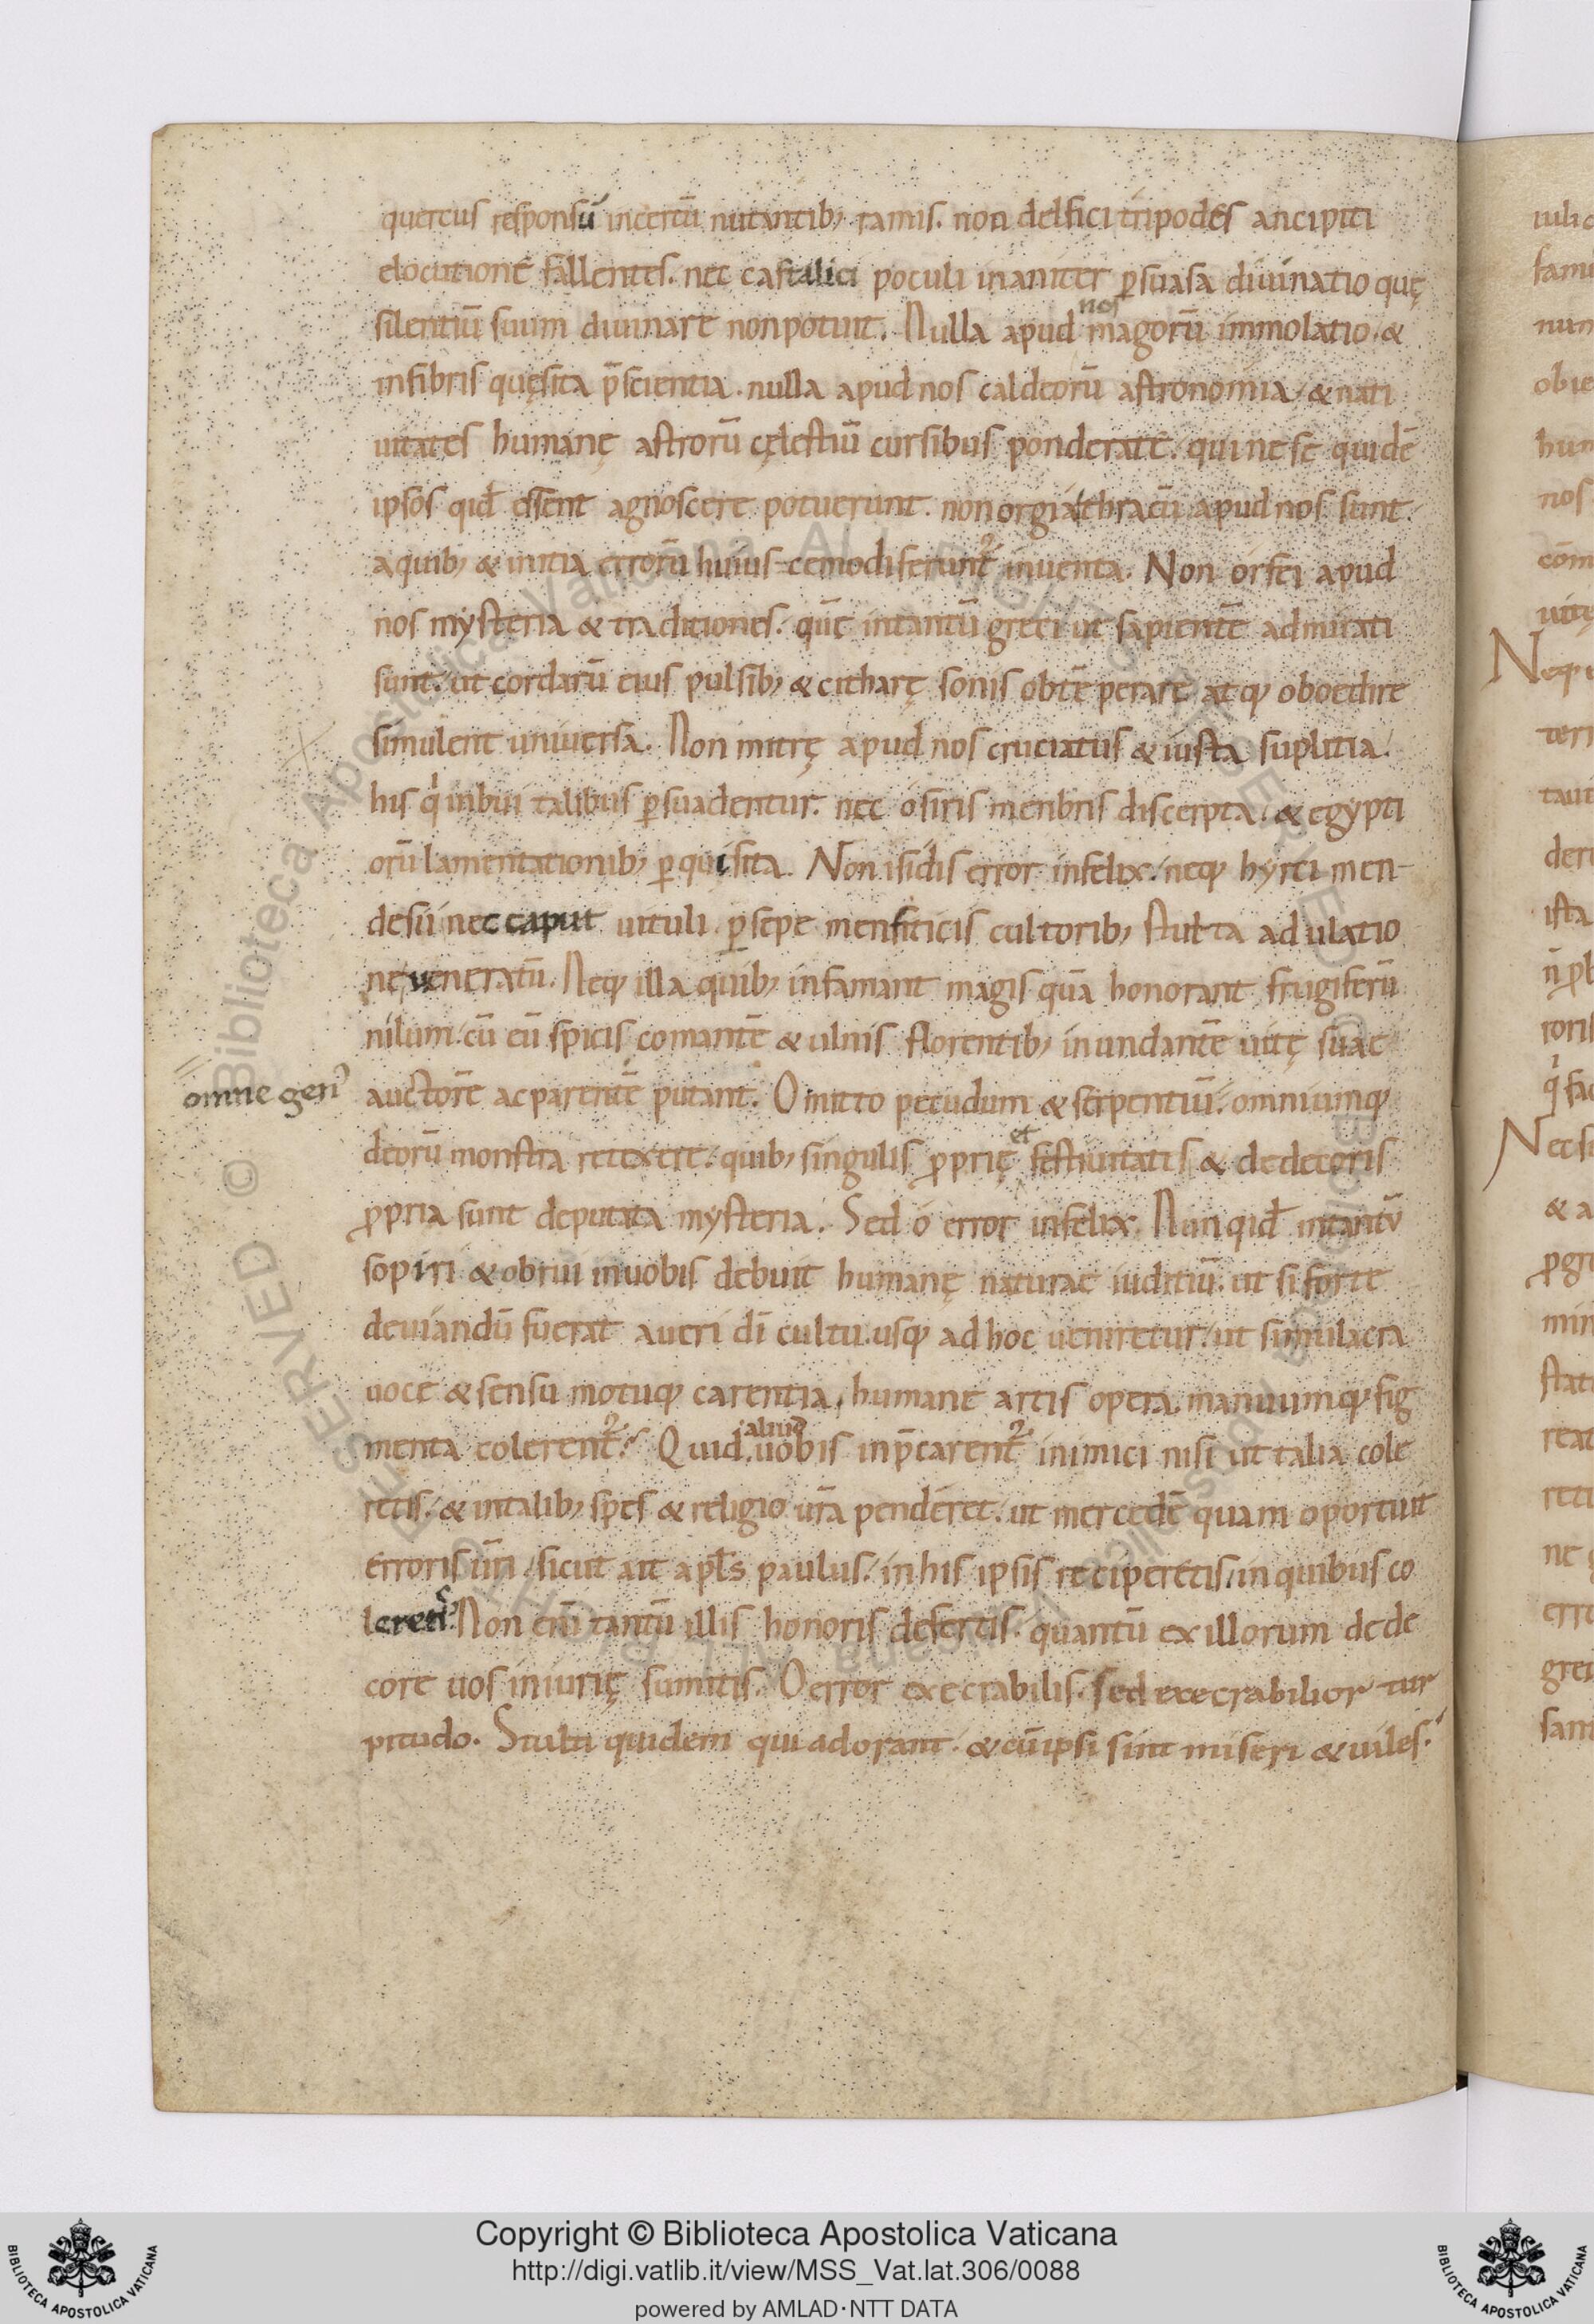 quercus responsū incertū nutantib; ramis. non delfici tripodes ancipiti
elocutione fallentes. nec castalici poculi inaniter p̱suasa diuinatio quę
silentiū suum diuinare non potuit. Nulla apud nos magorū immolatio. &
in fibris quęsita p̄scientia. nulla apud nos caldeorū astronomia, & nati
uitates humanę astrorū cęlestiū cursibus ponderatę. qui ne se quidē
ipsos qid̄ essent agnoscere potuerunt. non orgia thracū apud nos sunt.
a quib; & initia errorū huius-cemodi ferunt᷑ inuenta. Non orfei apud
nos mysteria & traditiones. quē intantū greci ut sapientē admirati
sunt. ut cordarū eius pulsib; & citharę sonis obtēperare atq; oboedire
simulent uniuersa. Non mitrę apud nos cruciatus & iusta suplitia.
his qͥ inbui talibus p̱suadentur. nec osiris menbris discerpta. & egypti
orū lamentationib; p̱quisita. Non isidis error infelix. neq; hyrci men-
desii nec caput uituli. p̱sepe menfiticis cultorib; stulta adulatio
ne ueneratū. Neq; illa quib; infamant magis quā honorant frugiferū
nilum. cū eū spicis comantē & ulnis florentib; inundantē uitę suae
omne gen᾽ auctorē ac parentē putant. Omitto pecudum & serpentiū. omniumq;
deorū monstra retexere. quib; singulis ꝓprię et festiuitatis & dedecoris
ꝓpria sunt deputata mysteria. Sed o error infelix. Nunqid̄ intantū
sopiri & obrui in uobis debuit humanę naturae iuditiū. ut si forte
deuiandū fuerat a ueri dī cultu. usq; ad hoc ueniretur. ut simulacra
uoce & sensu motuq; carentia, humane artis opera. manuumq; fig
menta colerent᷑. Quid aliud uobis inp̄carent᷑ inimici nisi ut talia cole
retis. & in talib; spes & religio ur̄a penderet. ut mercedē quam oportuit
erroris ur̄i, sicut ait apl̄s paulus. in his ipsis reciperetis, in quibus co
leretiˢ. Non eni̅ tantū illis honoris defertis. quantū ex illorum dede
core uos iniurię sumitis. O error execrabilis. sed execrabilior tur
pitudo. Stulti quidem qui adorant. & cū ipsi sint miseri & uiles.
Copyright © Biblioteca Apostolica Vaticana
http://digi.vatlib.it/view/MSS_Vat.lat.306/0088
powered by AMLAD·NTT DATA